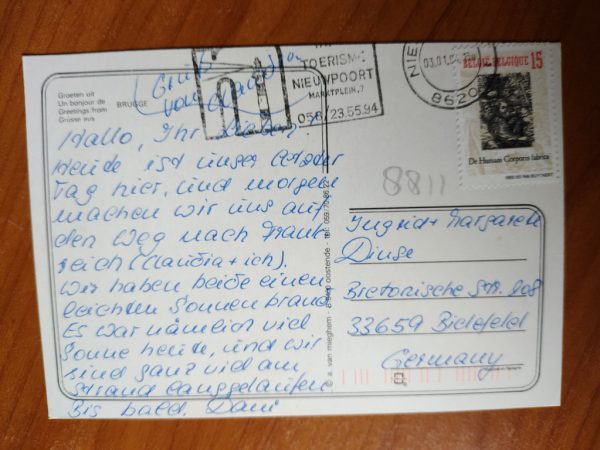 Groeten uit
Un bonjour de
Greetings from
Grüsse aus
BRUGGE
Gruß
von Claudia
TOERISME
NIEUWPOORT
MARKTPLEIN, 7
058/23.55.94
NIE
8620
BELGIË BELGIQUE 15
De Humani Corporis fabrica
8811
Hallo, Ihr Lieben!
Heute ist unser letzter
Tag hier, und morgen
machen wir uns auf
den Weg nach Frank-
reich (Claudia + ich).
Wir haben beide einen
leichten Sonnenbrand.
Es war nämlich viel
Sonne heute, und wir
sind ganz viel am
Strand langgelaufen.
Bis bald, Dani
© a. van mieghem oostende - tel.
Ingrid + Margarete
Dinse
Str. 208
33659 Bielefeld
Germany